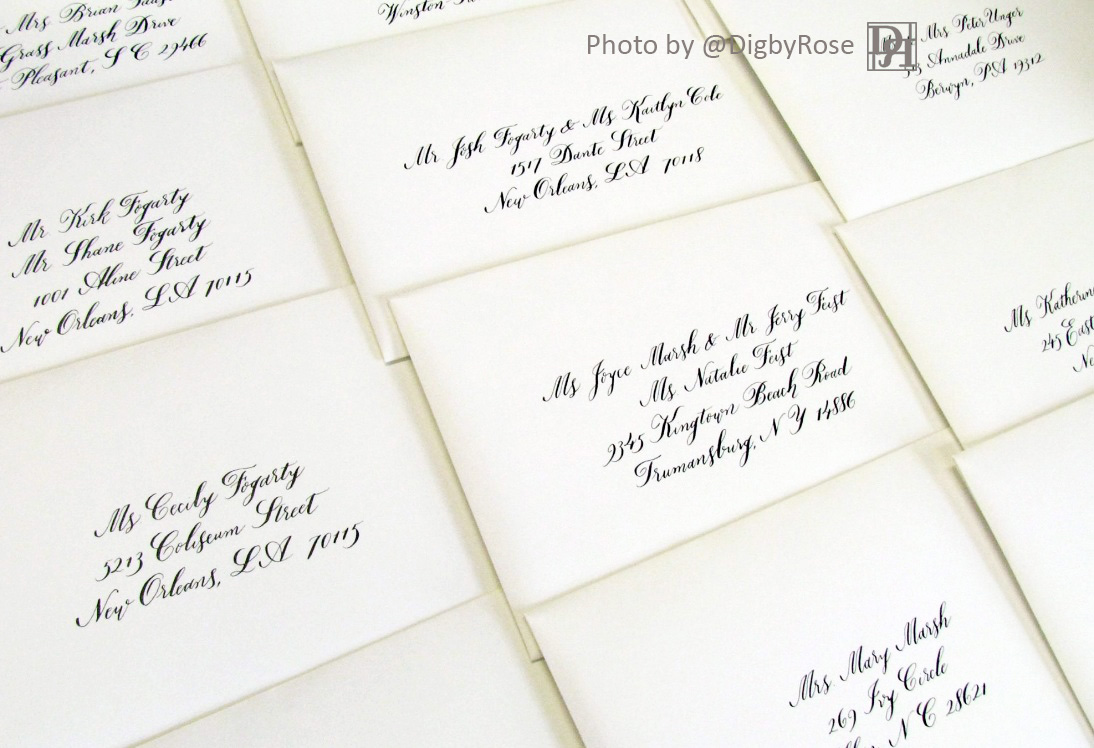 Mrs Brian
Grass Marsh Drive
Pleasant, S C 29466
Winston-Sa
Photo by @DigbyRose
Mrs Peter Unger
Annadale Drive
Berwyn, PA 19312
Mr Josh Fogarty & Ms Kaitlyn Cole
1517 Dante Street
New Orleans, LA 70118
Mr Kirk Fogarty
Mr Shane Fogarty
1001 Aline Street
New Orleans, LA 70115
Ms Joyce Marsh & Mr Jerry Feist
Ms Natalie Feist
9345 Kingtown Beach Road
Trumansburg, N Y 14886
Ms Katherin
245 East
Ne
Ms Cecily Fogarty
5213 Coliseum Street
New Orleans, LA 70115
Mrs Mary Marsh
269 Ivy Circle
N C 28621